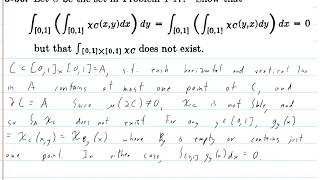 ∫[0,1] (∫[0,1] χC(x,y)dx) dy = ∫[0,1] (∫[0,1] χC(y,x)dy) dx = 0
but that ∫[0,1]×[0,1] χC does not exist.
C ⊂ [0,1]×[0,1] = A, s.t. each horizontal and vertical line
in A contains at most one point of C, and
∂C = A. Since μ(∂C) ≠ 0, χC is not ∫ble, and
so ∫A χC does not exist. For any y∈[0,1], gy(x)
= χC(x,y) = χBy(x) where By is empty or contains just
one point. In either case, ∫[0,1] gy(x)dx = 0.